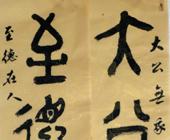 大公無
大公
至德
至德在人